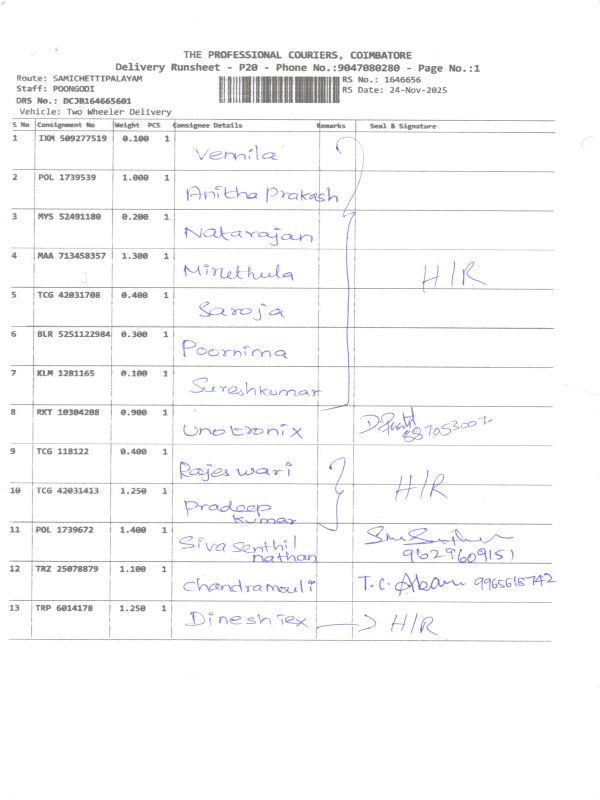 THE PROFESSIONAL COURIERS, COIMBATORE
Delivery Runsheet - P20 - Phone No.:9047080280 - Page No.:1
Route: SAMICHETTIPALAYAM RS No.: 1646656
Staff: POONGODI RS Date: 24-Nov-2025
DRS No.: DCJB164665601
Vehicle: Two Wheeler Delivery
S No Consignment No Weight PCS Consignee Details Remarks Seal & Signature
1 IXM 509277519 0.100 1 Vennila
2 POL 1739539 1.000 1 Anitha Prakash
3 MYS 52491180 0.200 1 Natarajan
4 MAA 713458357 1.300 1 H/R
5 TCG 42031708 0.400 1 Saroja
6 BLR 5251122984 0.300 1 Poornima
7 KLM 1281165 0.100 1 Sureshkumar
8 RKT 10304208 0.900 1 Unotronix
9 TCG 118122 0.400 1 Rajeswari
10 TCG 42031413 1.250 1 Pradeep H/R
kumar
11 POL 1739672 1.400 1 Sivasenthil
nathan 9629609151
12 TRZ 25078879 1.100 1 Chandramouli T.C. 9965618742
13 TRP 6014178 1.250 1 Dineshtex → H/R